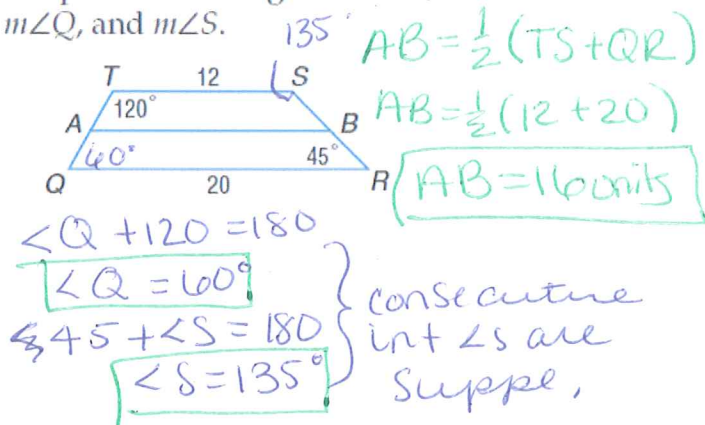 m∠Q, and m∠S.
135°
AB = 1/2 (TS + QR)
AB = 1/2 (12 + 20)
AB = 16 units
T 12 S
120°
A B
60° 45°
Q 20 R
<Q + 120 = 180
<Q = 60°
45 + <S = 180
<S = 135°
consecutive
int ∠s are
suppl.